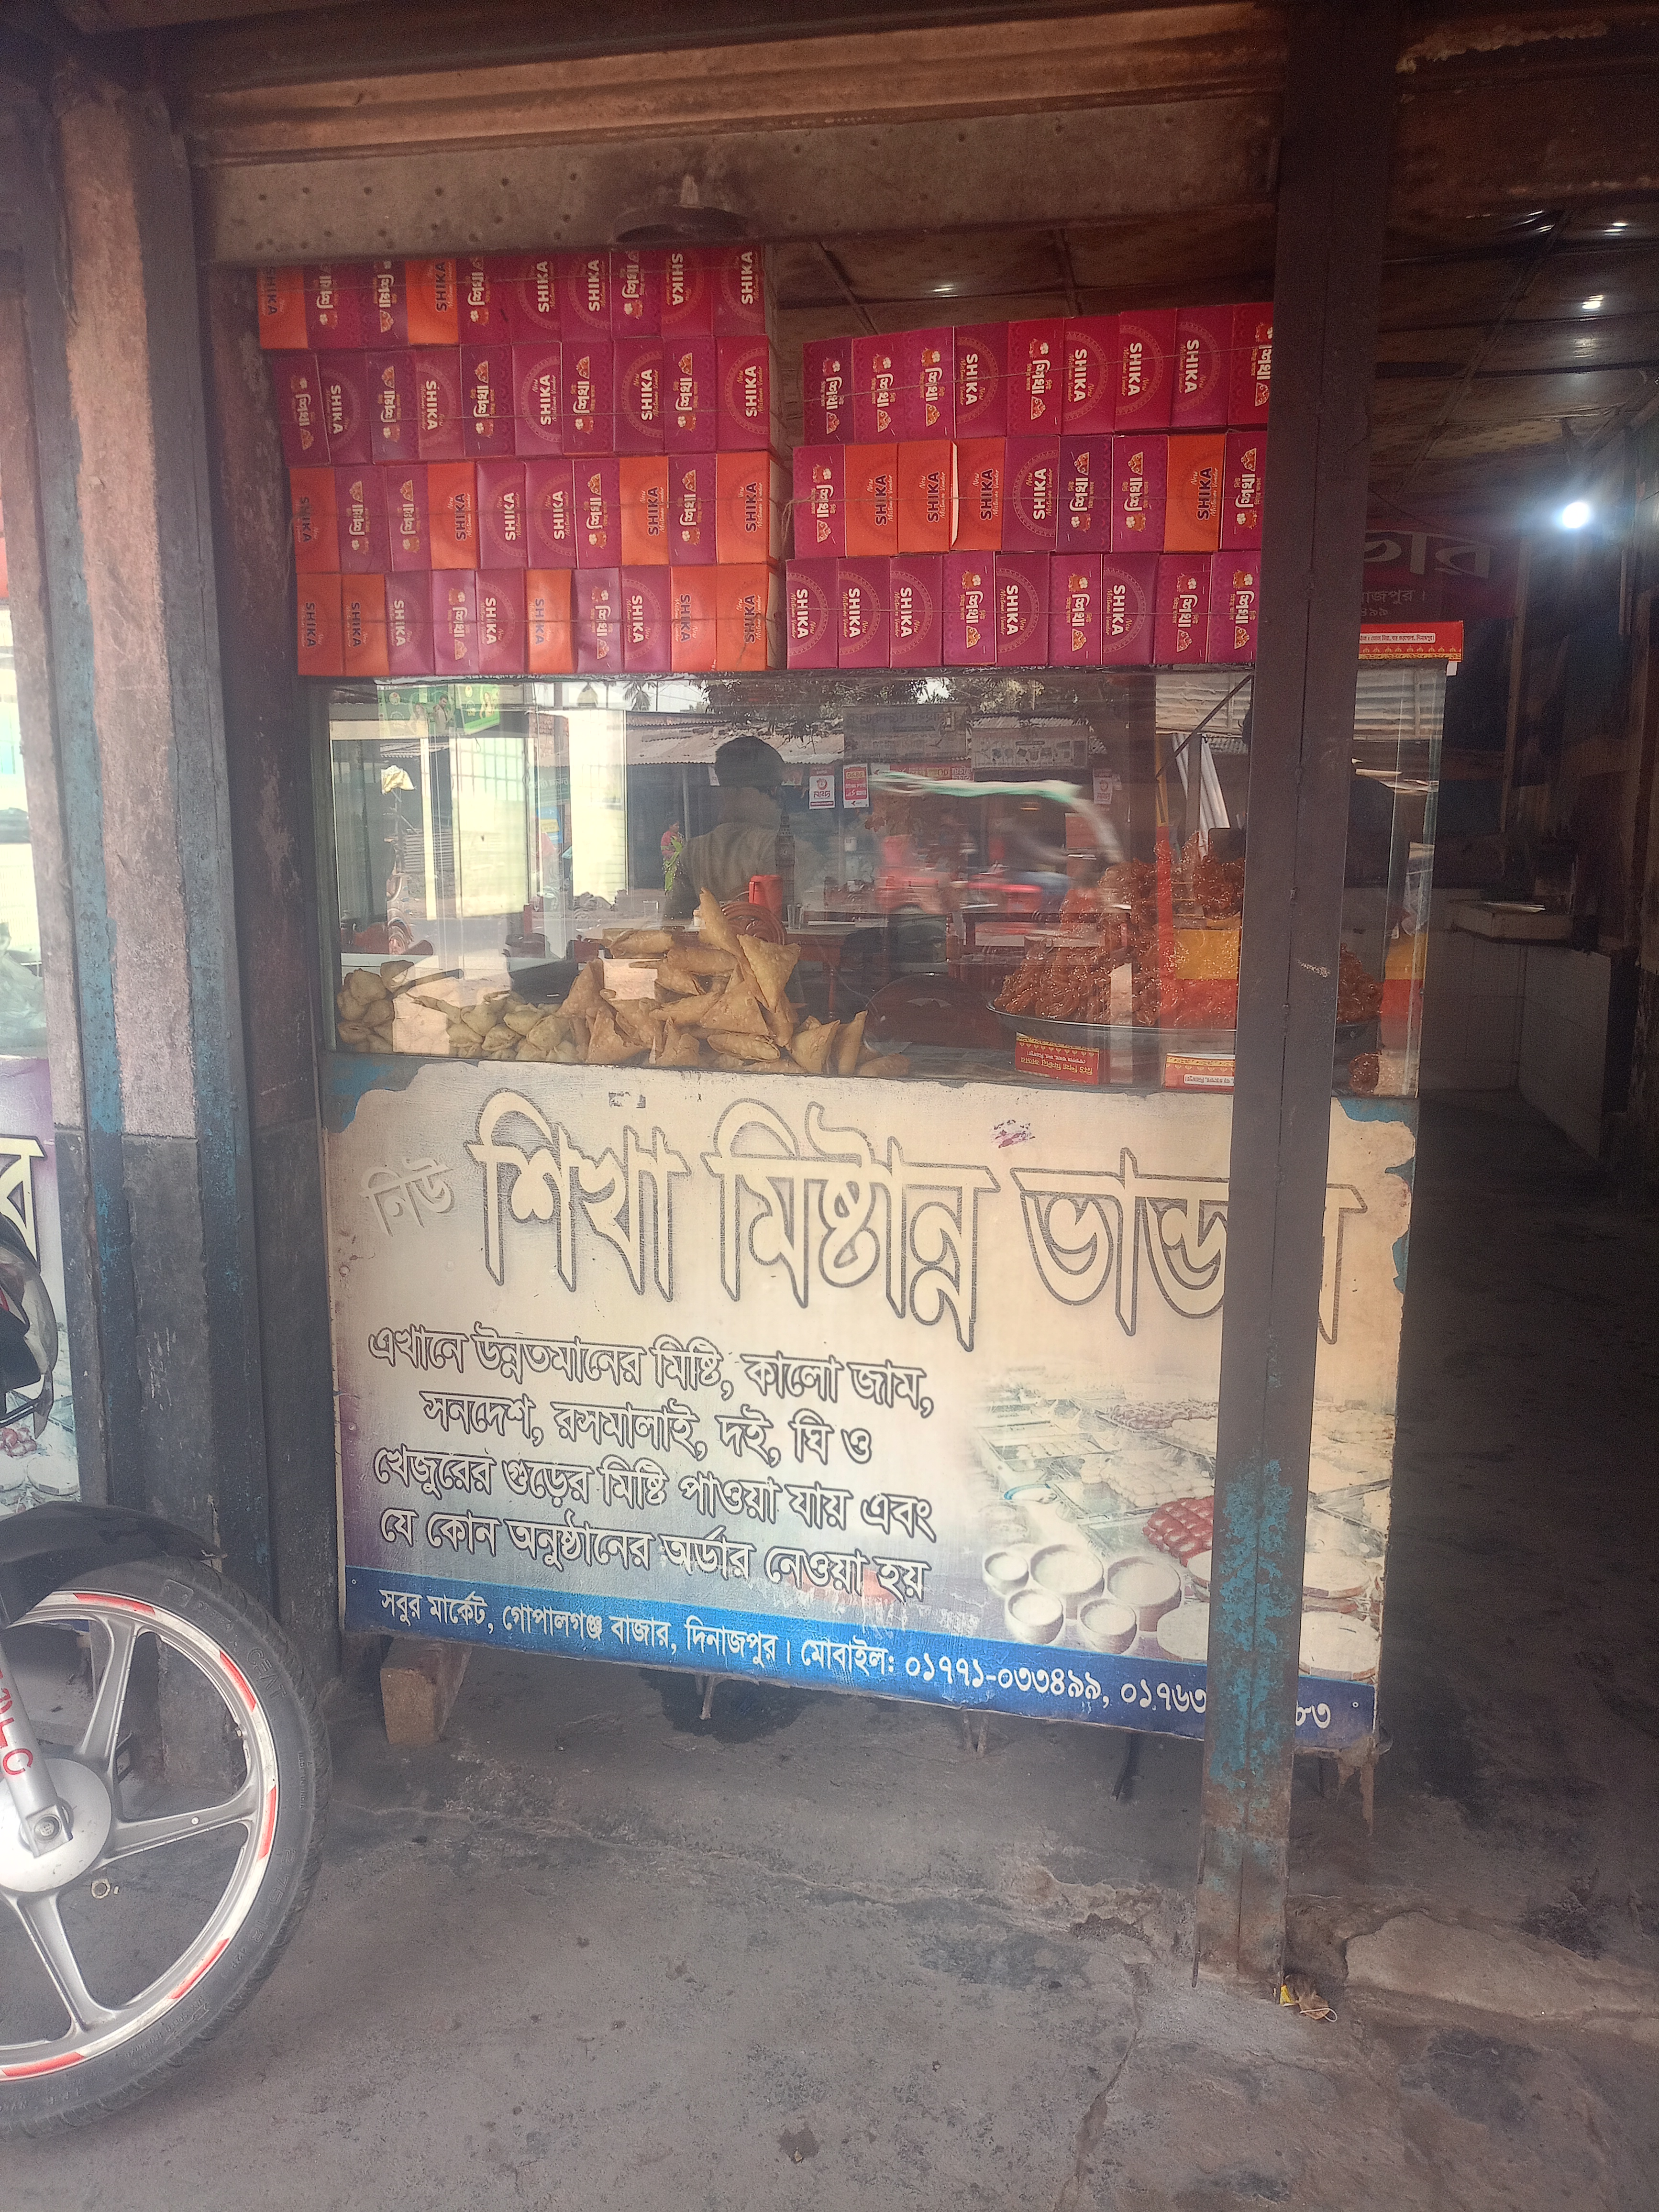 SHIKA
শিখা
নিউ শিখা মিষ্টান্ন ভান্ড
এখানে উন্নতমানের মিষ্টি, কালো জাম,
সনদেশ, রসমালাই, দই, ঘি ও
খেজুরের গুড়ের মিষ্টি পাওয়া যায় এবং
যে কোন অনুষ্ঠানের অর্ডার নেওয়া হয়
সবুর মার্কেট, গোপালগঞ্জ বাজার, দিনাজপুর। মোবাইল: ০১৭৭১-০৩৩৪৯৯, ০১৭৬৩ ৮৩